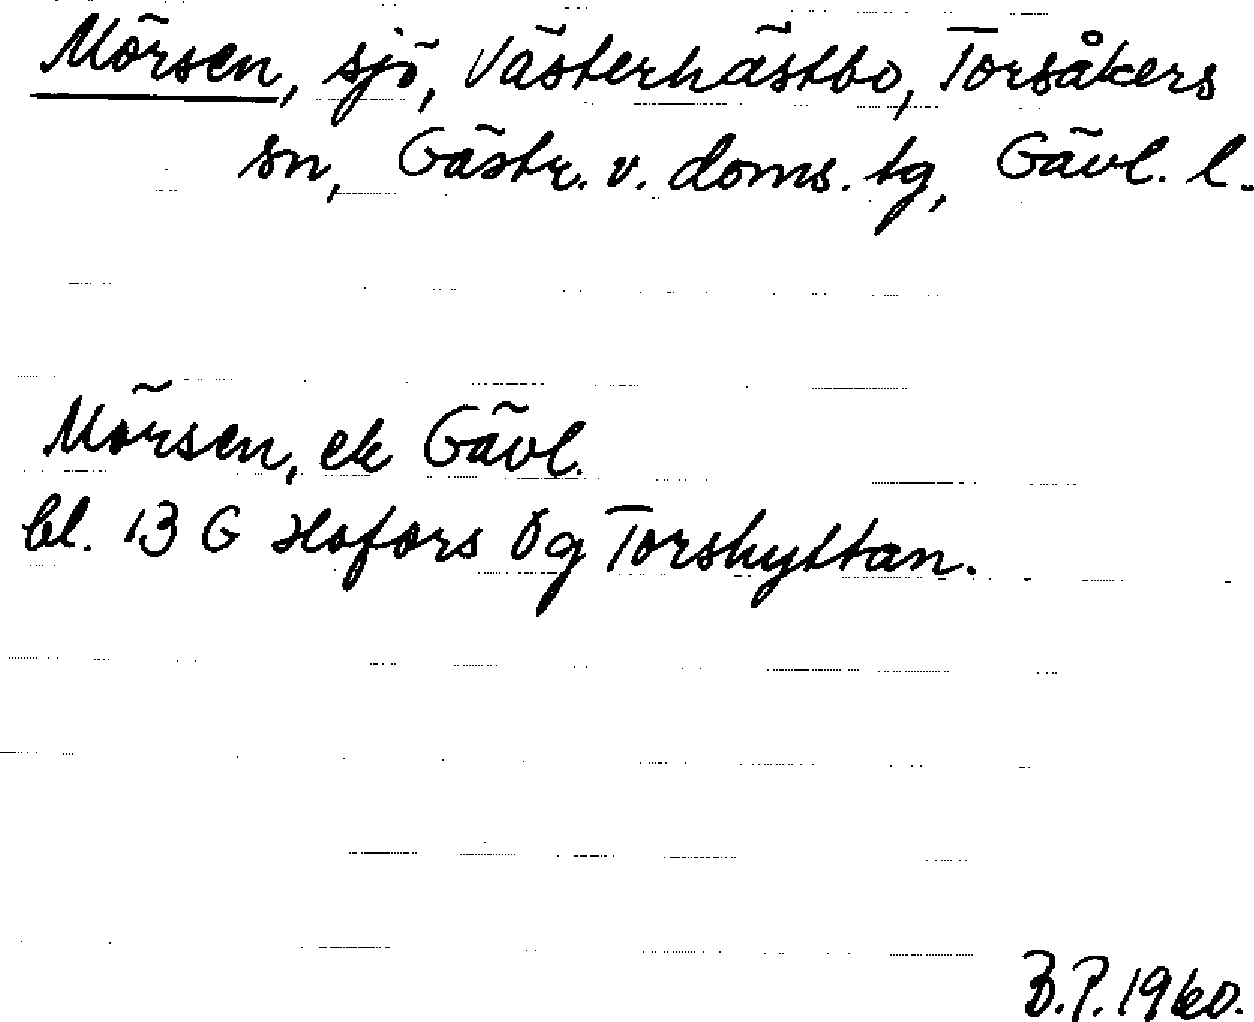 Mörsen, sjö, Västerhästbo, Torsåkers
sn, Gästr. v. doms. tg, Gävl. l.
Mörsen, ek Gävl.
bl. 13 G Hofors ög Torshyttan.
B.P. 1960.